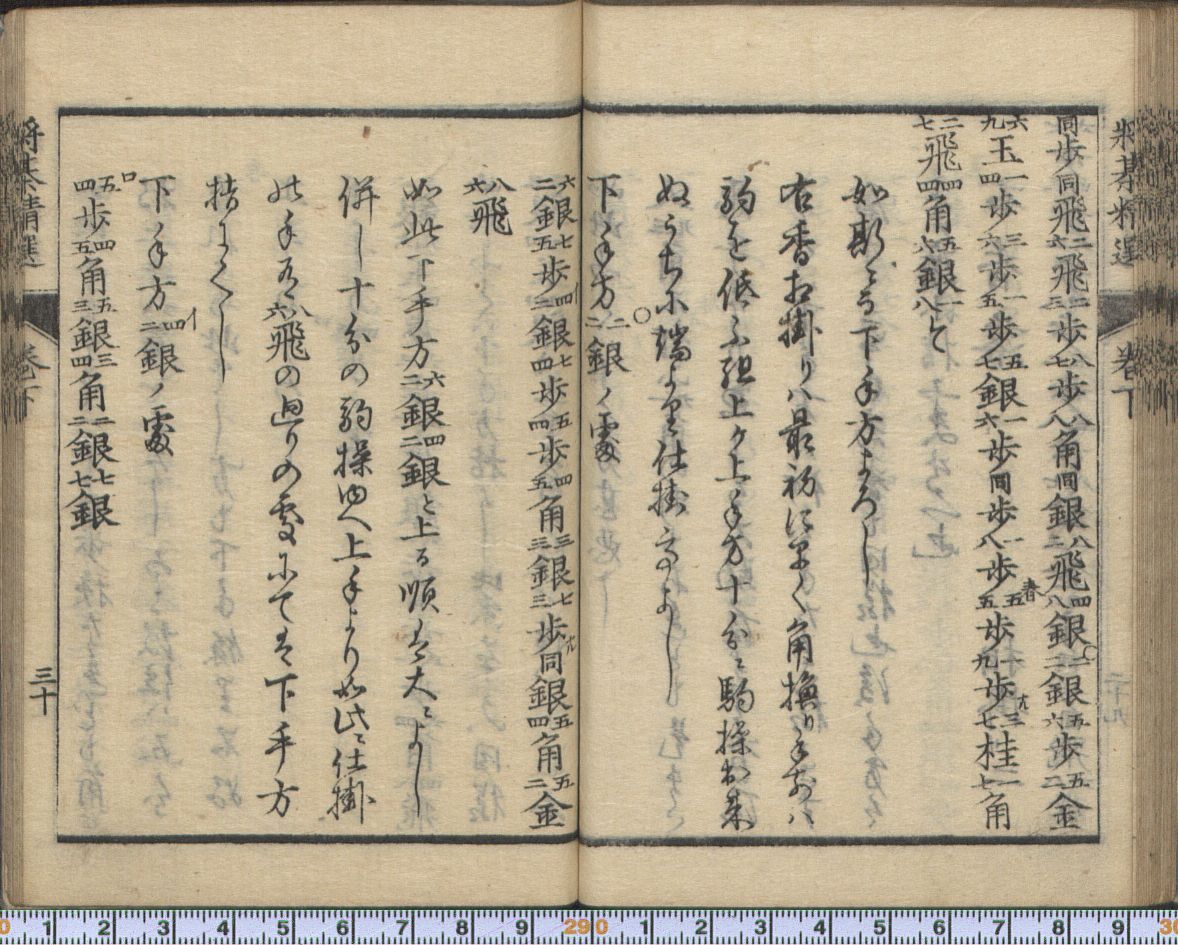 将棊精選 巻下
同歩同飛二六飛二三歩八七歩八八角同銀八二飛四八銀二二銀五六歩五二金
六九玉一四歩三六歩一五歩五七銀一六歩同歩一八歩五五歩一九歩三七桂一七角
二七飛四四角五六銀一八と
如斯に而下手方よろし
右香 掛りハ最初 早く角換り手 ハ
駒を低ふ組上ケ上手方十分に駒操出来
ぬうちに端より仕掛 よし
下手方二二銀ノ処
六二銀七五歩四二銀七四歩五四歩四五角三三銀七三歩同銀五四角五二金
八六飛
如此下手方六二銀四二銀と上る順 大によし
併し十分の駒操ゆへ上手より如此に仕掛
此手 八六飛の廻りの処にて 下手方
指よくし
下手方四二銀ノ処
五四歩四五角五三銀三四角二二銀七七銀
将棊精選 巻下 三十